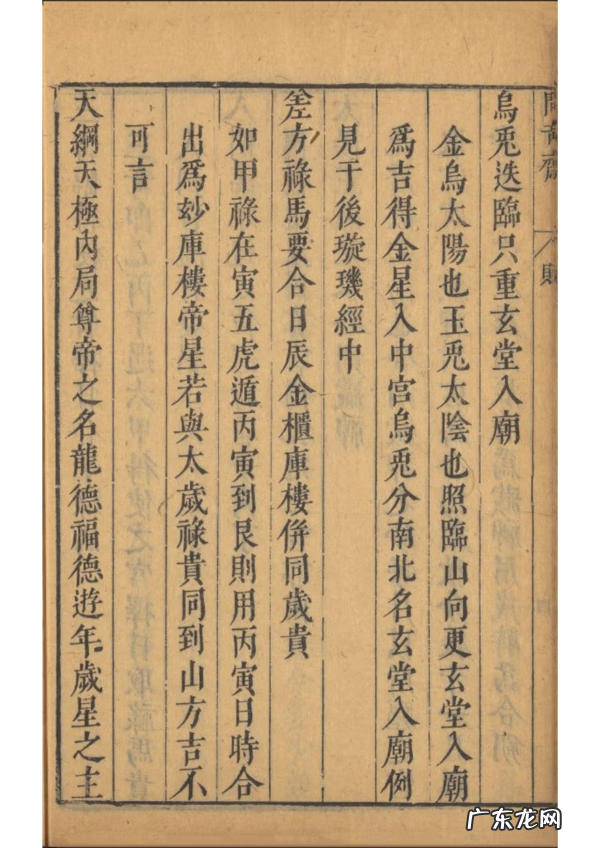 烏兎迭臨只重玄堂入廟
金烏太陽也玉兎太陰也照臨山向更玄堂入廟
爲吉得金星入中宮烏兎分南北名玄堂入廟例
見于後璇璣經中
差方祿馬要合日辰金櫃庫樓併同歲貴
如甲祿在寅五虎遁丙寅到艮則用丙寅日時合
出爲妙庫樓帝星若與太歲祿貴同到山方吉不
可言
天綱天極內局尊帝之名龍德福德遊年歲星之主
廣东龙网